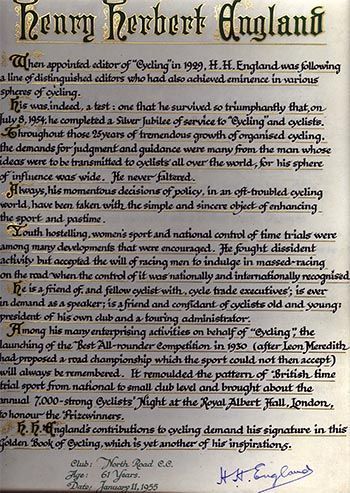 Henry Herbert England
When appointed editor of "Cycling" in 1929, H. H. England was following
a line of distinguished editors who had also achieved eminence in various
spheres of cycling.
His was, indeed, a test: one that he survived so triumphantly that, on
July 8, 1954, he completed a Silver Jubilee of service to "Cycling" and cyclists.
Throughout those 25 years of tremendous growth of organised cycling,
the demands for judgment and guidance were many from the man whose
ideas were to be transmitted to cyclists all over the world, for his sphere
of influence was wide. He never faltered.
Always, his momentous decisions of policy, in an oft-troubled cycling
world, have been taken with the simple and sincere object of enhancing
the sport and pastime.
Youth hostelling, women's sport and national control of time trials were
among many developments that were encouraged. He fought dissident
activity but accepted the will of racing men to indulge in massed-racing
on the road when the control of it was nationally and internationally recognised.
He is a friend of, and fellow cyclist with, cycle trade executives; is ever
in demand as a speaker; is a friend and confidant of cyclists old and young;
president of his own club and a touring administrator.
Among his many enterprising activities on behalf of "Cycling", the
launching of the "Best All-rounder Competition in 1930 (after Leon Meredith
had proposed a road championship which the sport could not then accept)
will always be remembered. It remoulded the pattern of British time
trial sport from national to small club level and brought about the
annual 7,000-strong Cyclists' Night at the Royal Albert Hall, London,
to honour the Prizewinners.
H. H. England's contributions to cycling demand his signature in this
Golden Book of Cycling, which is yet another of his inspirations.
Club: North Road C.C.
Age: 61 Years.
Date: January 11, 1955
H. H. England